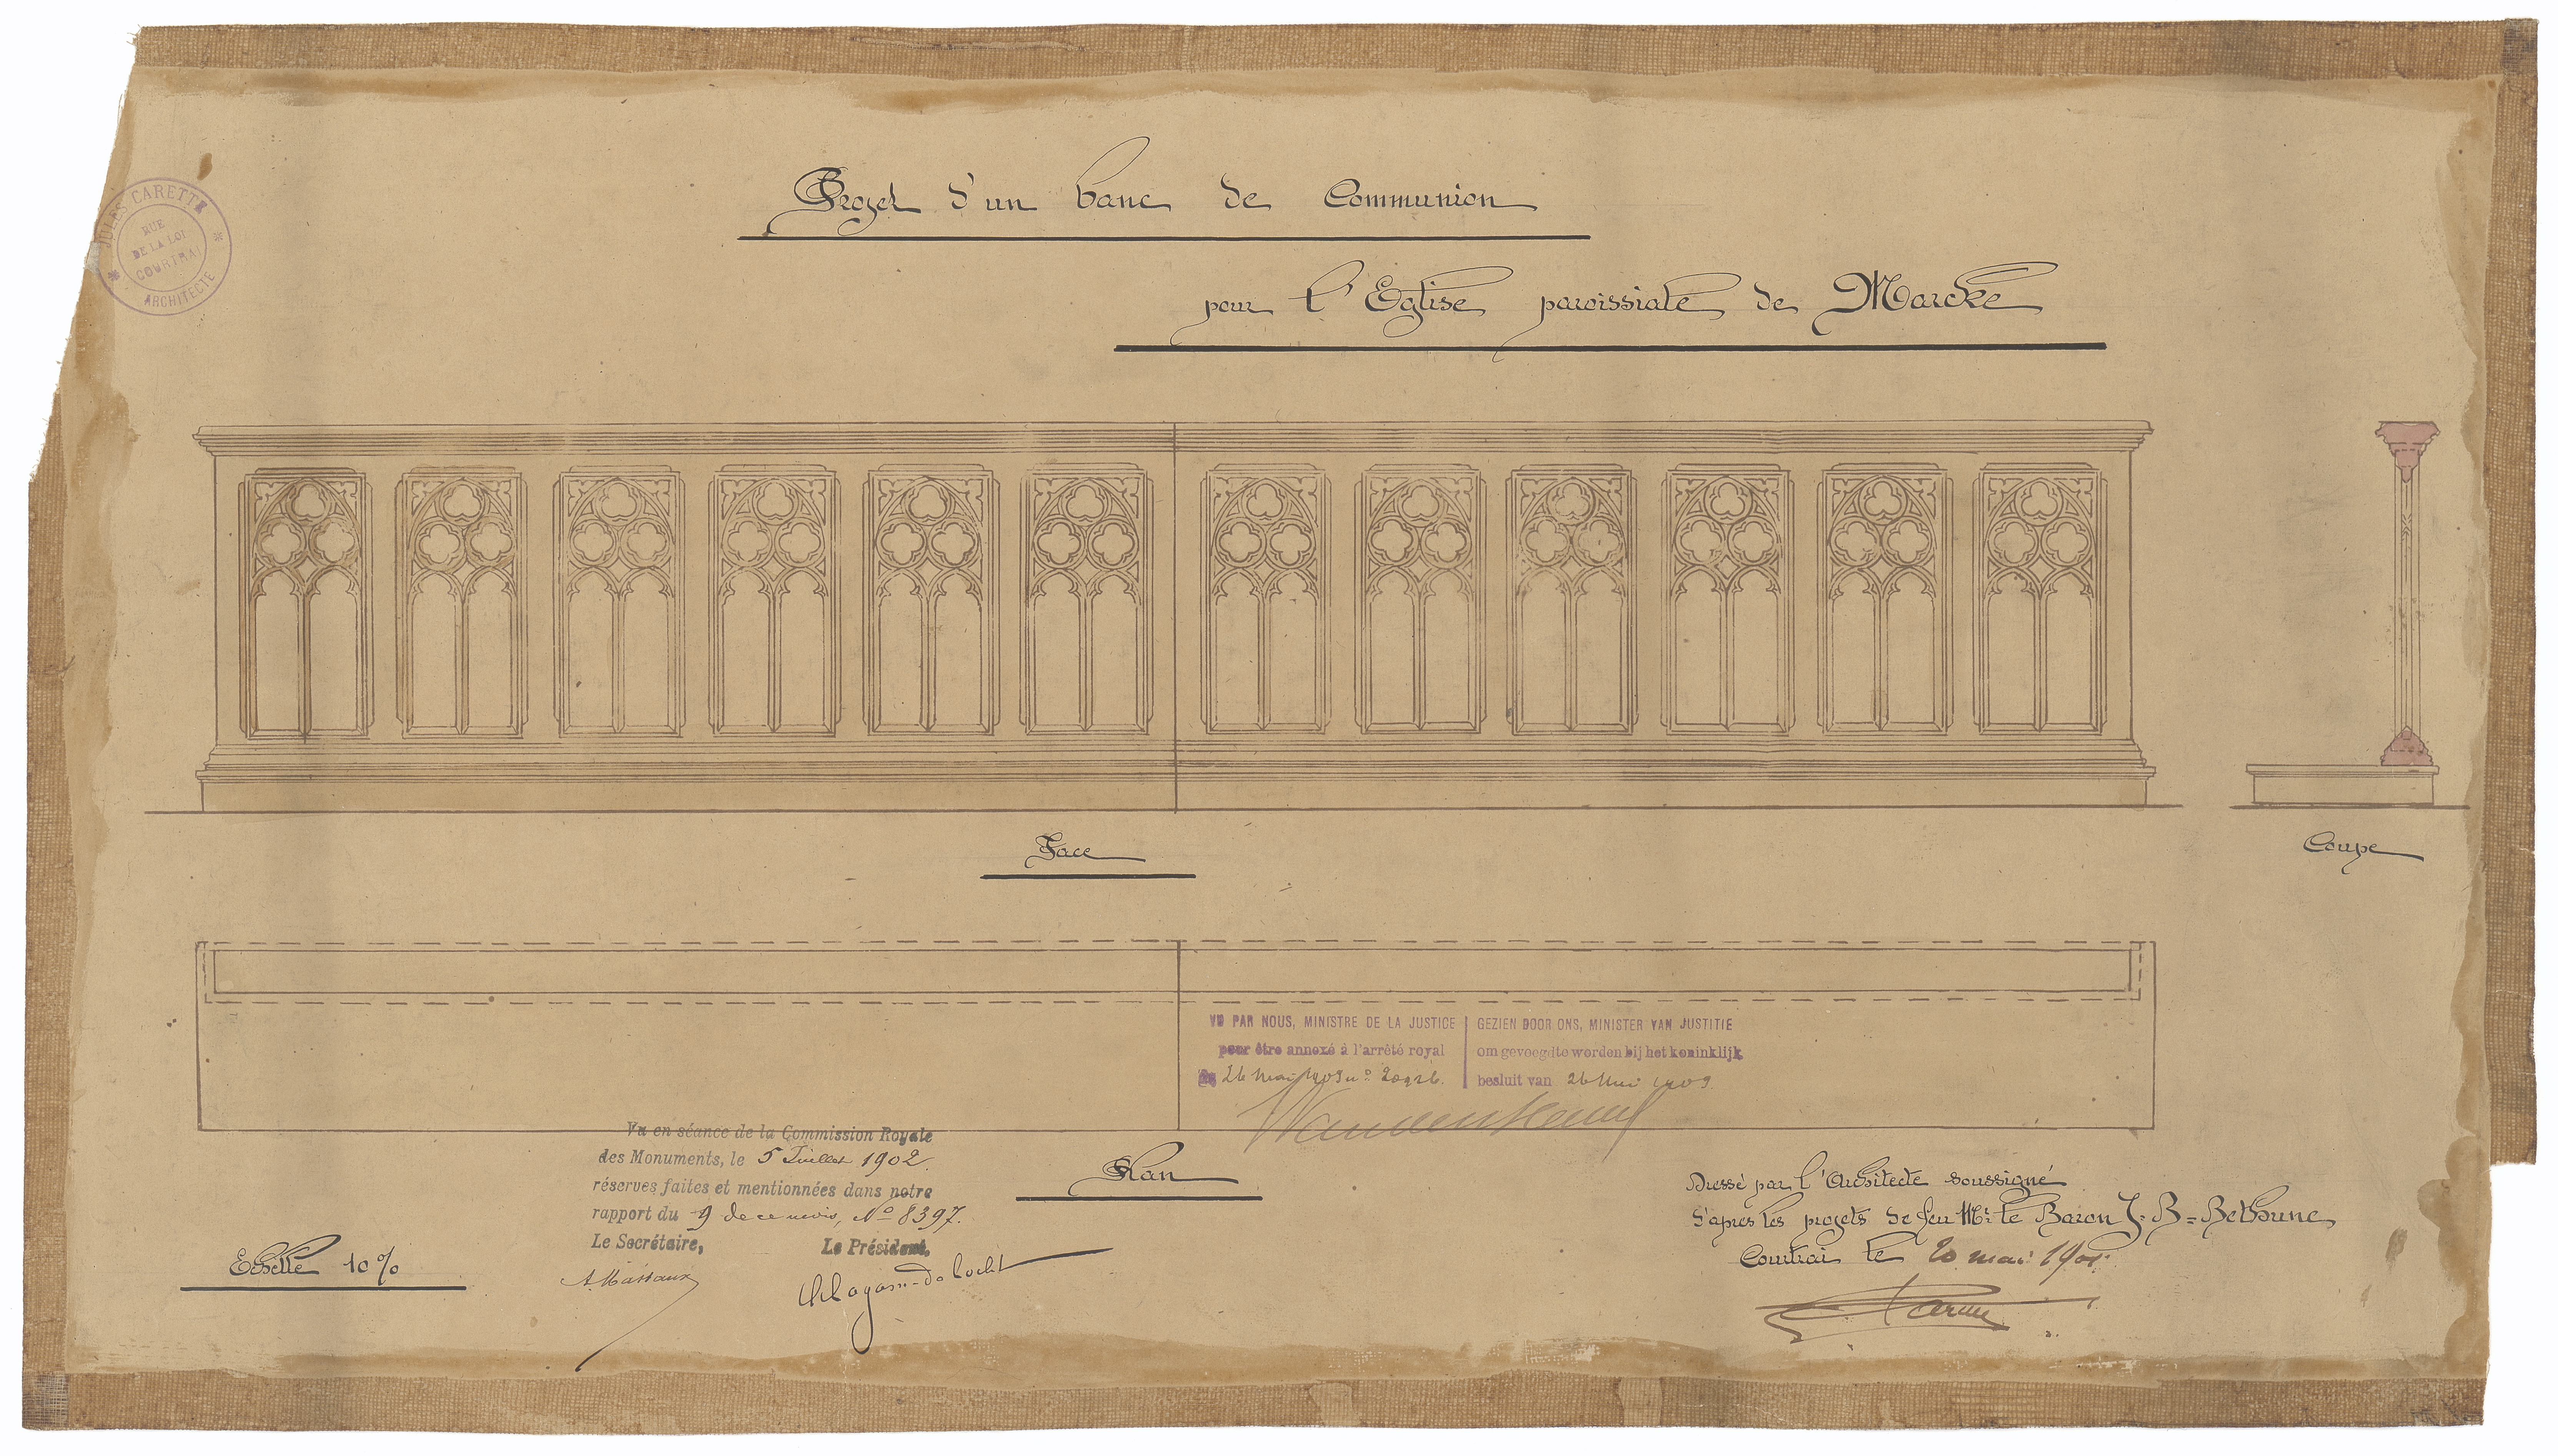 Projet d'un banc de Communion
pour l'Eglise paroissiale de Marcke
JULES CARETTE
ARCHITECTE
RUE
DE LA LOI
COURTRAI
Face
Coupe
VU PAR NOUS, MINISTRE DE LA JUSTICE
pour être annexé à l'arrêté royal
du 26 mai 1903 n°
GEZIEN DOOR ONS, MINISTER VAN JUSTITIE
om gevoegd te worden bij het koninklijk
besluit van 26 Mei 1903
Vu en séance de la Commission Royale
des Monuments, le 5 Juillet 1902.
réserves faites et mentionnées dans notre
rapport du 9 de ce mois, N° 8397.
Le Secrétaire,
Le Président,
A. Massaux
Plan
Echelle 10%
Dressé par l'Architecte soussigné
d'après les projets de feu Mr le Baron J-B=Bethune
Courtrai le 20 mai